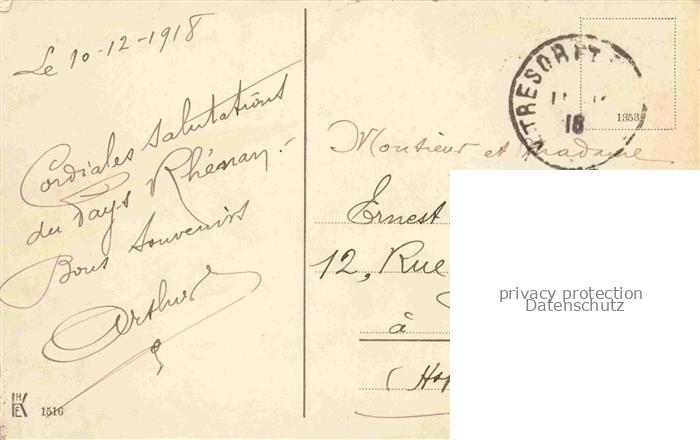 Le 10-12-1918
Cordiales salutations
du Pays Rhénan.
Bons Souvenirs
Arthur
HKE
1516
TRESOR ET
18
1353
Monsieur et Madame
Ernest
12, Rue
à
privacy protection
Datenschutz